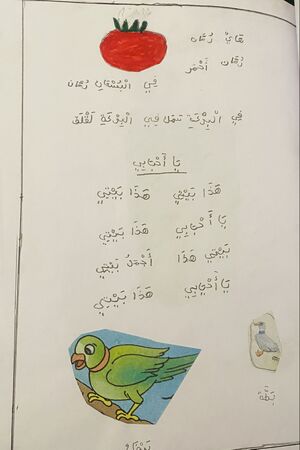 هَايْ رُمَّان
رُمَّان أَحْمَر
فِي الْبُسْتَانِ رُمَّان
فِي الْبِرْكَةِ سَمَك فِي الْبِرْكَةِ لَقْلَق
يَا أَحْبَابِي
هَذَا بَيْتِي هَذَا بَيْتِي
يَا أَحْبَابِي هَذَا بَيْتِي
بَيْتِي هَذَا أَجْمَلُ بَيْتٍ
يَا أَحْبَابِي هَذَا بَيْتِي
بَطَّة